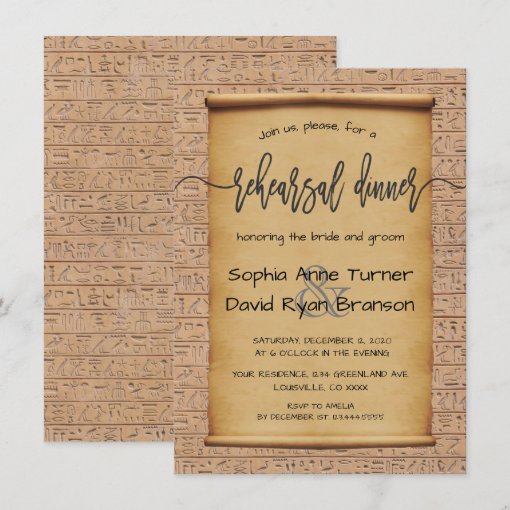 Join us, please, for a
rehearsal dinner
honoring the bride and groom
Sophia Anne Turner
&
David Ryan Branson
SATURDAY, DECEMBER 12, 2020
AT 6 O'CLOCK IN THE EVENING
YOUR RESIDENCE, 1234 GREENLAND AVE
LOUISVILLE, CO XXXX
RSVP TO AMELIA
BY DECEMBER 1ST. 123.444.5555